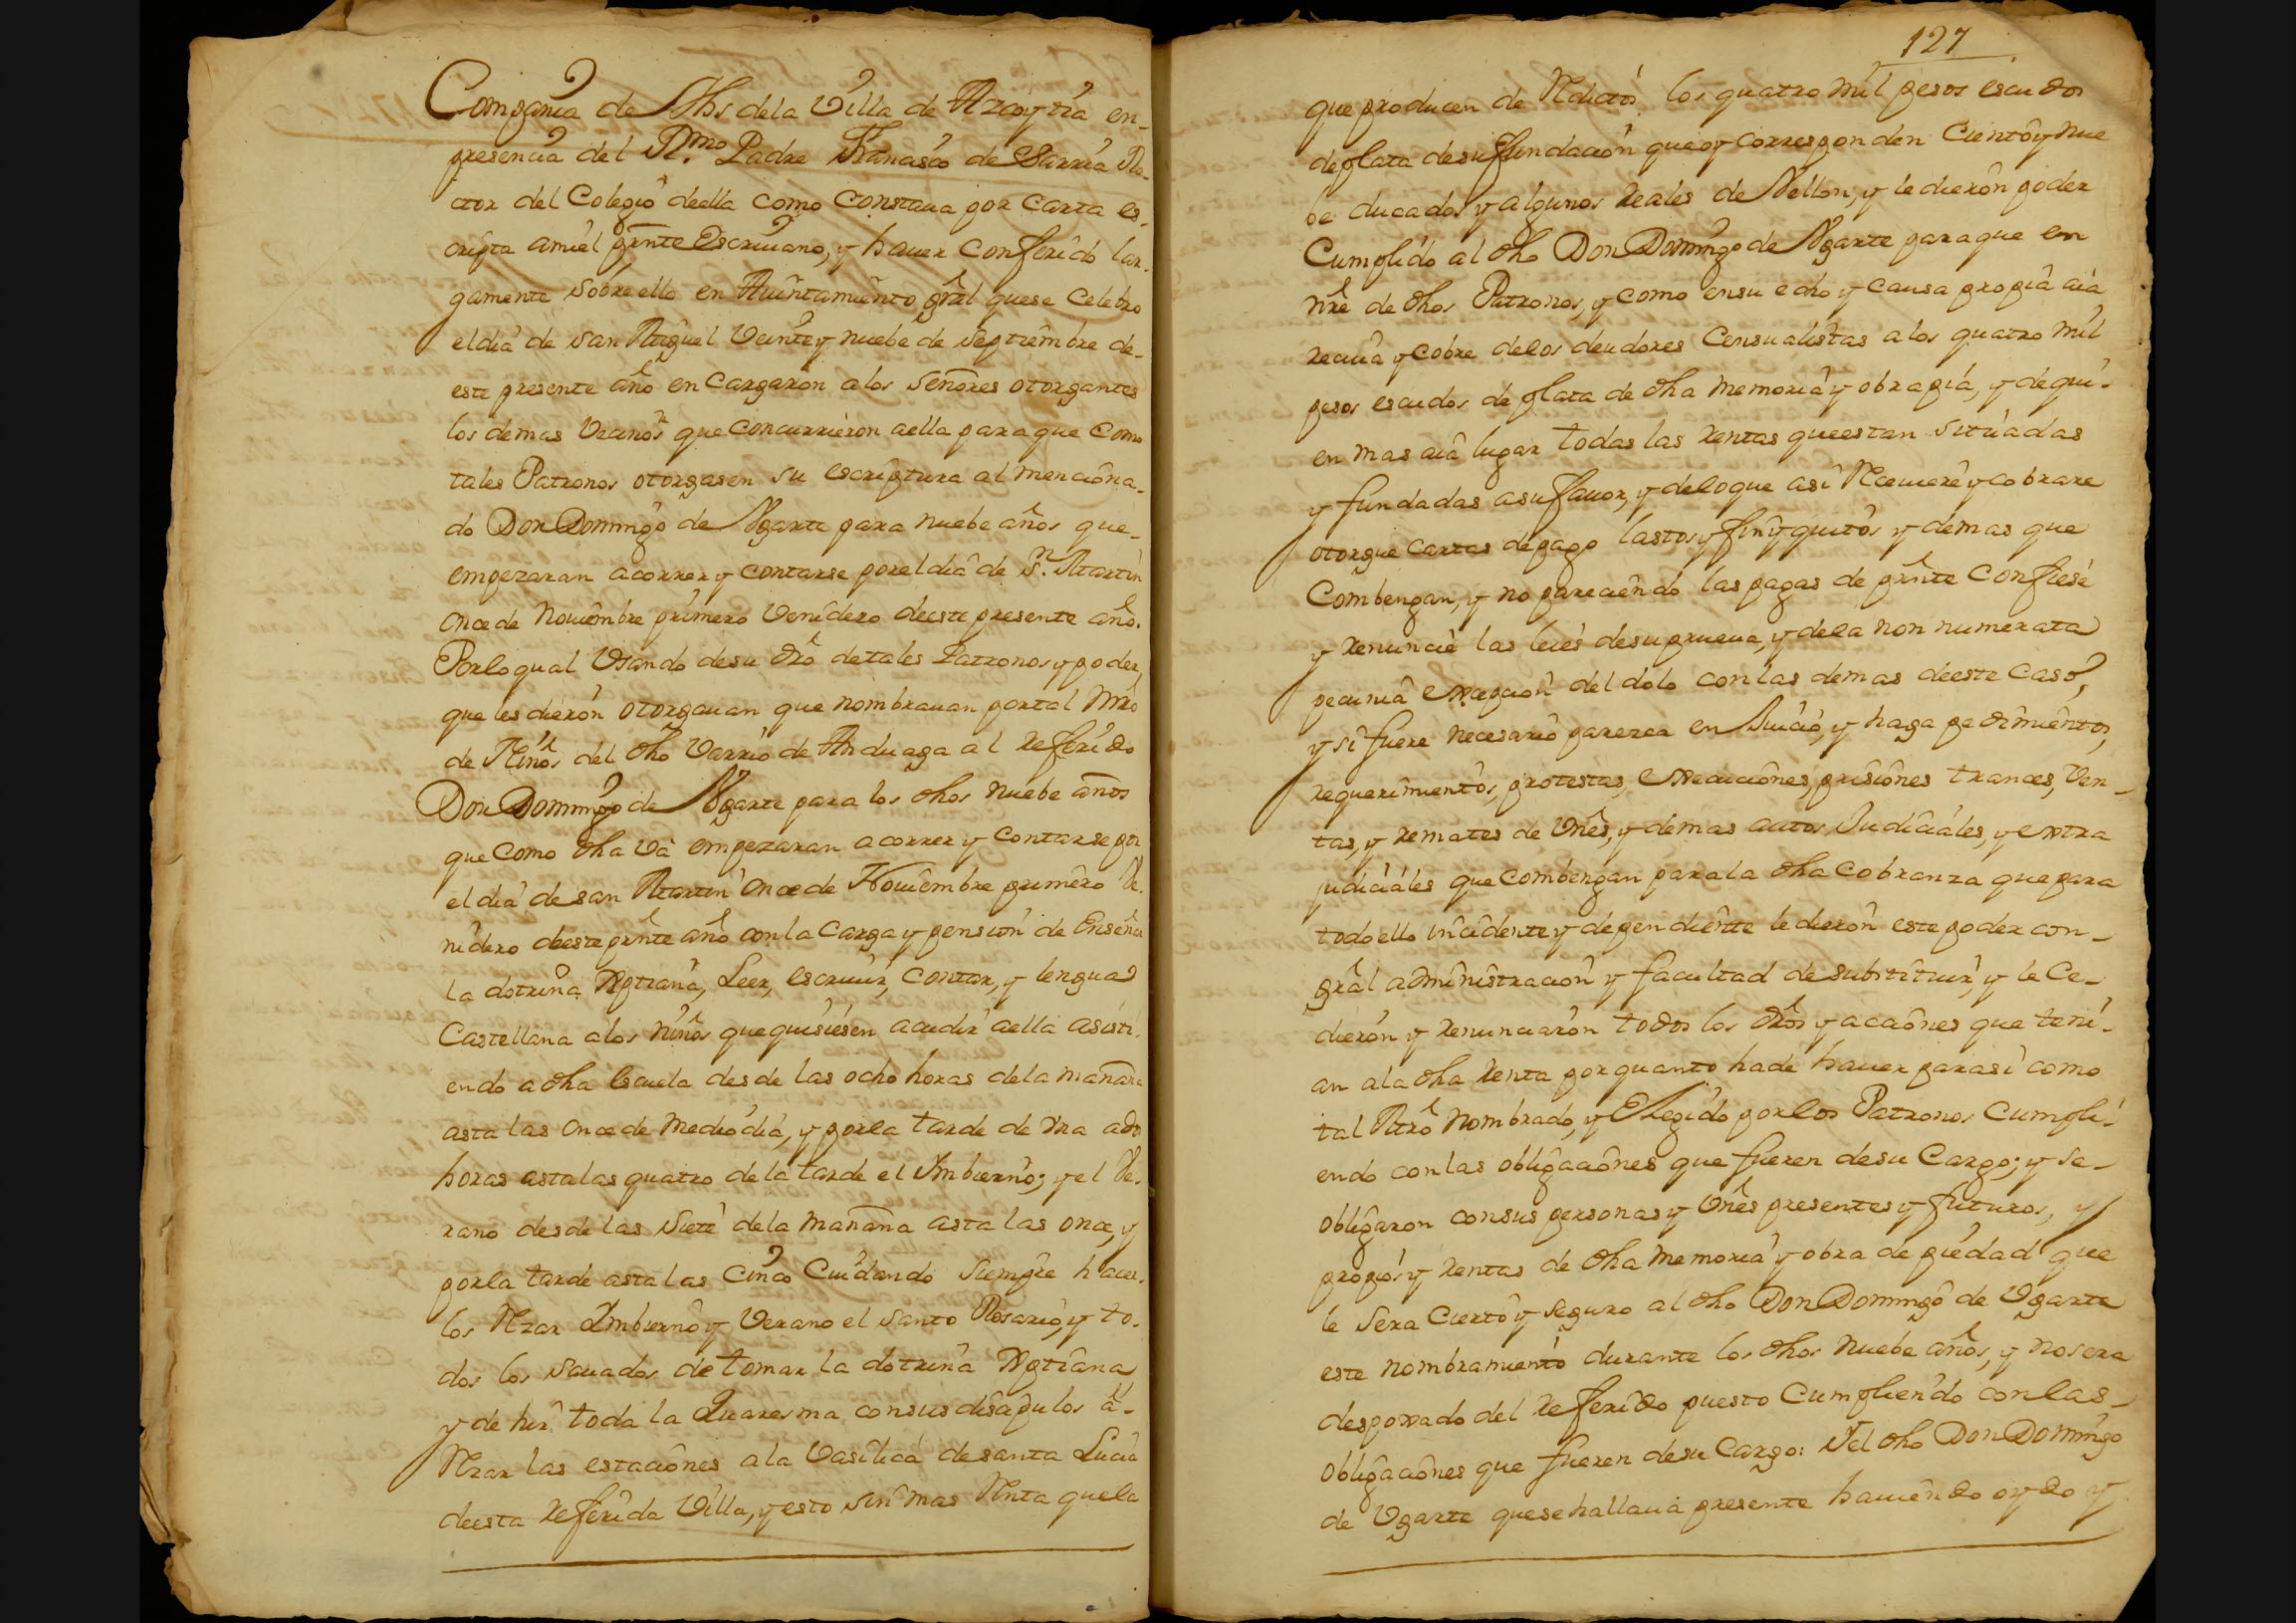 Compañia de Jhs dela Villa de Azcoytia en-
presencia del R.mo Padre Francisco de Sarria Re-
ctor del Colegio deella como constaua por carta es-
cripta amiel prnte Escriuano, y hauer conferido lar-
gamente sobre ello en Auintamiento gral quese celebro
eldia de san Miguel Veinte y nuebe de septiembre de-
este presente año en cargaron alos señores otorgantes
los demas Vecinos que concurrieron aella paraque como
tales Patronos otorgasen su escriptura al menciona-
do Don Domingo de Vgarte para nuebe años que-
empezaran acorrer y contarse poreldia de S.n Martin
once de Nouiembre primero Venidero deeste presente año.
Porloqual Vsando desu dro detales Patronos y poder,
que les dieron otorgauan que nombrauan portal Mro
de Niños del dho Varrio de Anduaga al referido
Don Domingo de Vgarte para los dhos nuebe años
que como dha Va empezaran acorrer y contarse por
eldia de san Martin once de Nouiembre primero Ve-
nidero deeste prnte año con la carga y pension de Enseñar
la dotrina Xptiana, Leer, escriuir, contar, y lengua
Castellana alos niños que quisiesen acudir aella asisti-
endo a dha Escuela desde las ocho horas dela mañana
asta las once de mediodia, y porla tarde de Vna ados
horas astalas quatro dela tarde el Imbierno; y el Ve-
rano desde las siete dela mañana asta las once, y
porla tarde asta las cinco Cuidando siempre hacer-
los Rezar Imbierno y Verano el santo Rosario, y to-
dos los sauados detomar la dotrina Xptiana
y de hir toda la Quaresma consus disipulos á-
Rezar las estaciones ala Vasilica de santa Lucia
deesta referida Villa, y esto sin mas Renta quela
127
que producen de Reditos los quatro mil pesos escudos
de plata desu fundacion que oy corresponden Ciento y nue
be ducados y algunos reales de Vellon, y le dieron poder
Cumplido al dho Don Domingo de Vgarte paraque en
nre de dhos Patronos, y como ensu echo y causa propia aia
reciua y cobre delos deudores Censualistas alos quatro mil
pesos escudos de plata de dha memoria y obrapia, y dequi-
en mas aia lugar todas las rentas queestan situadas
y fundadas asu fauor, y deloque asi Reciuiere y cobrare
otorgue cartas depago lastos y finyquitos y demas que
Combengan, y no pareciendo las pagas de prnte Confiese
y renuncie las leies desu prueua, y dela non numerata
pecunia excepcion del dolo conlas demas deeste caso,
y si fuere necesario parezca en Juicio, y haga pedimientos,
requerimientos, protestas, execuciones, prisiones trances, Ven-
tas, y remates de Vnes, y demas autos Judiciales, y extra
judiciales que combengan parala dha cobranza quepara
todoello incidente y dependiente le dieron este poder con-
gral administracion y facultad de substituir, y le Ce-
dieron y renunciaron todos los dros y acciones que teni-
an ala dha renta porquanto hade hauer parasi como
tal Mro Nombrado, y Elegido porlos Patronos cumpli-
endo conlas obligaciones que fueren desu Cargo; y se-
obligaron consus personas y Vnes presentes y futuros, y
propios y rentas de dha memoria y obra de piedad que
le sera Cierto y seguro al dho Don Domingo de Vgarte
este nombramiento durante los dhos nuebe años, y nosera
despoxado del referido puesto Cumpliendo conlas-
obligaciones que fueren desu Cargo: Vel dho Don Domingo
de Vgarte quese hallaua presente hauiendo oydo y